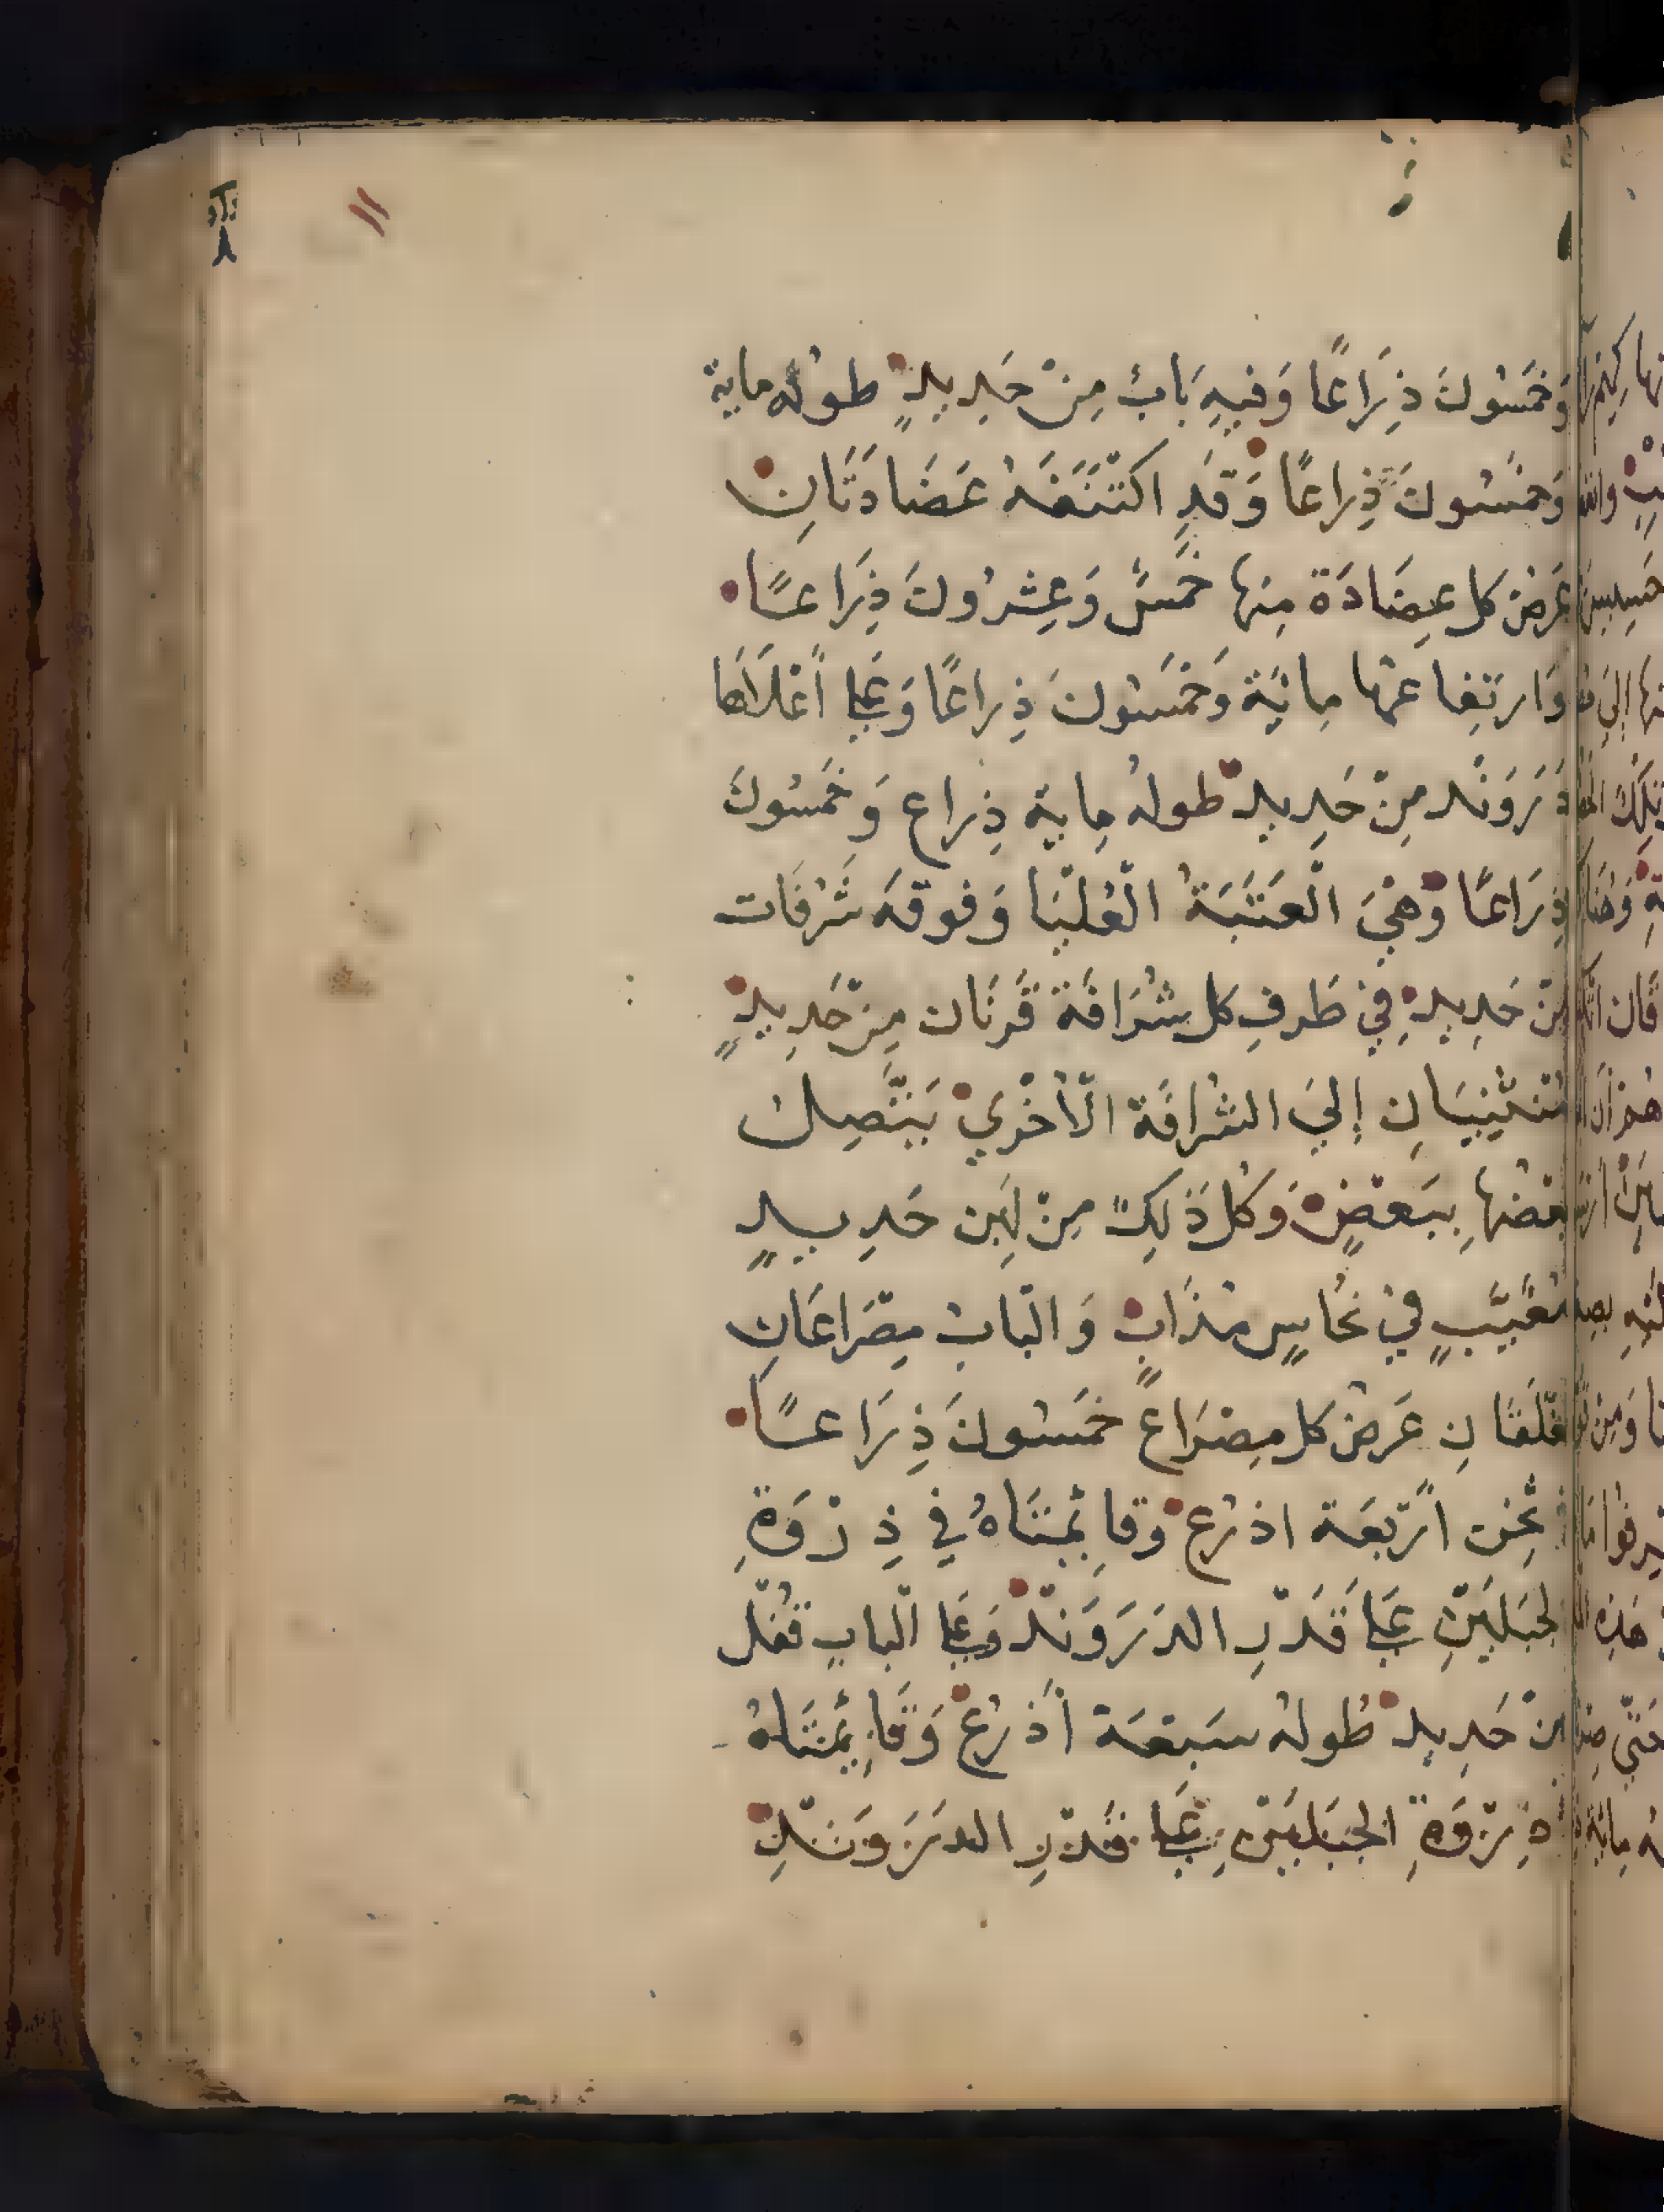 وَخَمسُونَ ذِرَاعًا وَفيهِ بَابٌ مِنْ حَدِيدٍ طولُه ماية
وَخمسُونَ ذِراعًا وَقَدِ اكتَنَفَهُ عَضَادَتَانِ
عَرضُ كل عِضَادَة مِنها خَمسٌ وَعِشرُونَ ذِرَاعًا
وَارتِفاعُها مِائَة وَخَمسُونَ ذِراعًا وَعَلي أَعْلَاهَا
دَرَوَنْد مِنْ حَدِيد طولهُ مِاية ذِراع وَخَمسُونَ
ذِرَاعًا وَهْيَ الْعَتَبَةُ الْعُلْيَا وَفوقَهَ شَرُفَات
مِنْ حَدِيدٍ فِي طَرفِ كل شُرَافَة قَرنَان مِنْ حَدِيدٍ
تَنْثَنِيَانِ إِليَ الشرافَة الْأخْرَي يَتَّصِلُ
بَعضُهَا بِبَعْضٍ وَكُل ذَلِكَ مِنْ لَبِن حَدِيدٍ
مُغَيَّبٍ فيْ نُحَاسٍ مذَابٍ وَالْبَابُ مِصْرَاعَانِ
مُغلَقَانِ عَرضُ كل مِصْرَاعٍ خمَسُونَ ذِرَاعًا
فِي ثِخَن أَرْبَعَة اذرُع وَقَائِمَتَاهُ فِي ذِرْوَةِ
الجَبَلَيْنِ عَلي قَدْرِ الدَرَوَنْد وَعَلي الْبابِ قفْل
مِنْ حَدِيد طُولهُ سَبْعَة أَذرُع وَقَائِمَتَاهُ
ذِرْوَةِ الجَبَلَيْنِ عَلي قَدْرِ الدَرَوَنْدِ